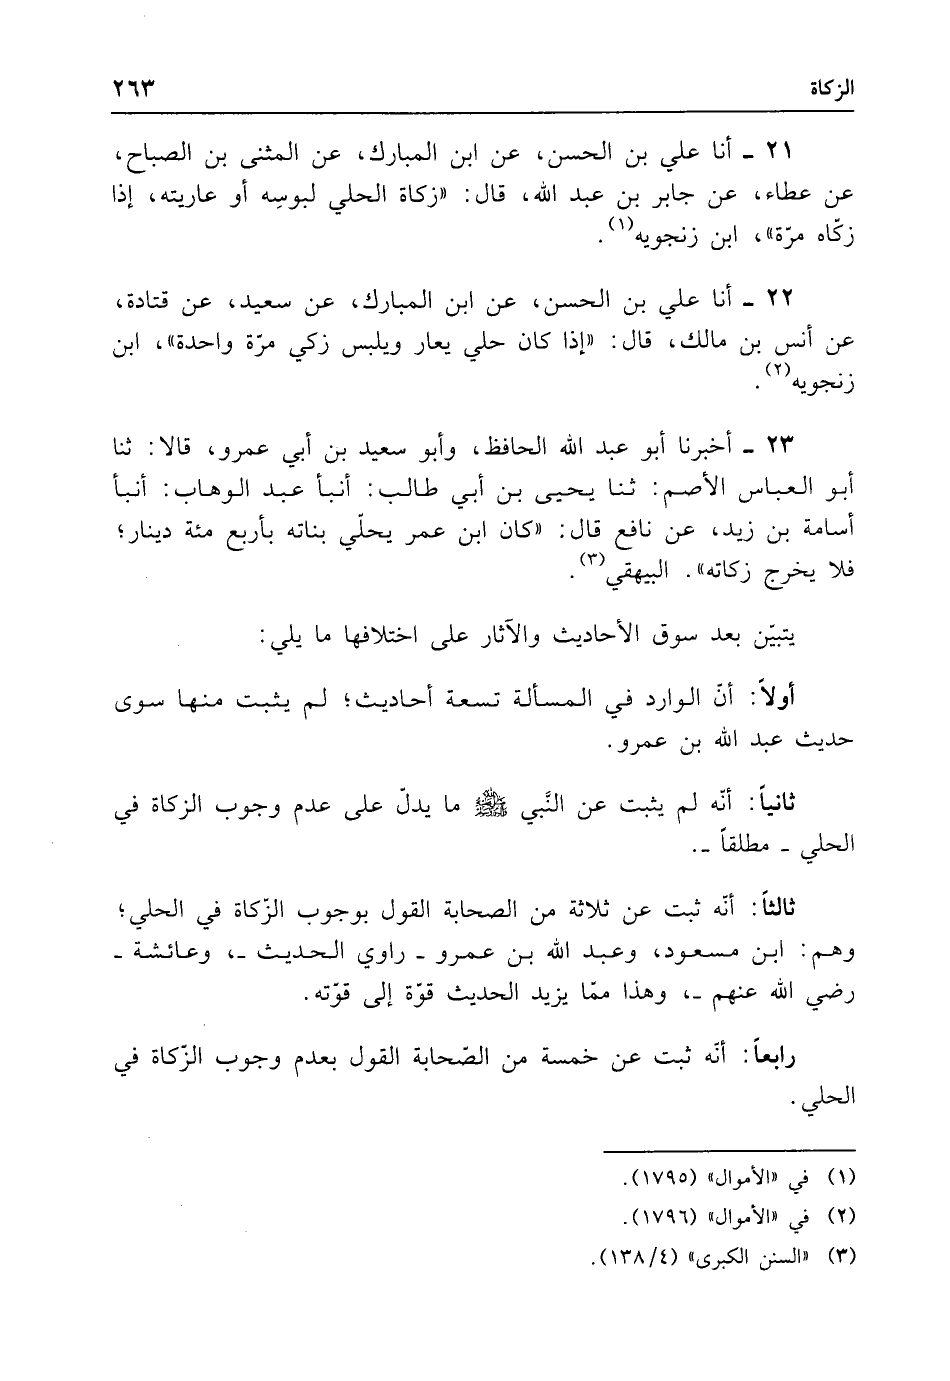 الزكاة ٢٦٣
٢١ ـ أنا علي بن الحسن، عن ابن المبارك، عن المثنى بن الصباح،
عن عطاء، عن جابر بن عبد الله، قال: «زكاة الحلي لبوسِه أو عاريته، إذا
زكّاه مرّة»، ابن زنجويه(١).
٢٢ ـ أنا علي بن الحسن، عن ابن المبارك، عن سعيد، عن قتادة،
عن أنس بن مالك، قال: «إذا كان حلي يعار ويلبس زكي مرّة واحدة»، ابن
زنجويه(٢).
٢٣ ـ أخبرنا أبو عبد الله الحافظ، وأبو سعيد بن أبي عمرو، قالا: ثنا
أبو العباس الأصم: ثنا يحيى بن أبي طالب: أنبأ عبد الوهاب: أنبأ
أسامة بن زيد، عن نافع قال: «كان ابن عمر يحلّي بناته بأربع مئة دينار؛
فلا يخرج زكاته». البيهقي(٣).
يتبيّن بعد سوق الأحاديث والآثار على اختلافها ما يلي:
أولاً: أنّ الوارد في المسألة تسعة أحاديث؛ لم يثبت منها سوى
حديث عبد الله بن عمرو.
ثانياً: أنّه لم يثبت عن النَّبي ﷺ ما يدلّ على عدم وجوب الزكاة في
الحلي ـ مطلقاً ـ.
ثالثاً: أنّه ثبت عن ثلاثة من الصحابة القول بوجوب الزّكاة في الحلي؛
وهم: ابن مسعود، وعبد الله بن عمرو ـ راوي الحديث ـ، وعائشة ـ
رضي الله عنهم ـ، وهذا ممّا يزيد الحديث قوّة إلى قوّته.
رابعاً: أنّه ثبت عن خمسة من الصّحابة القول بعدم وجوب الزّكاة في
الحلي.
(١) في «الأموال» (١٧٩٥).
(٢) في «الأموال» (١٧٩٦).
(٣) «السنن الكبرى» (١٣٨/٤).